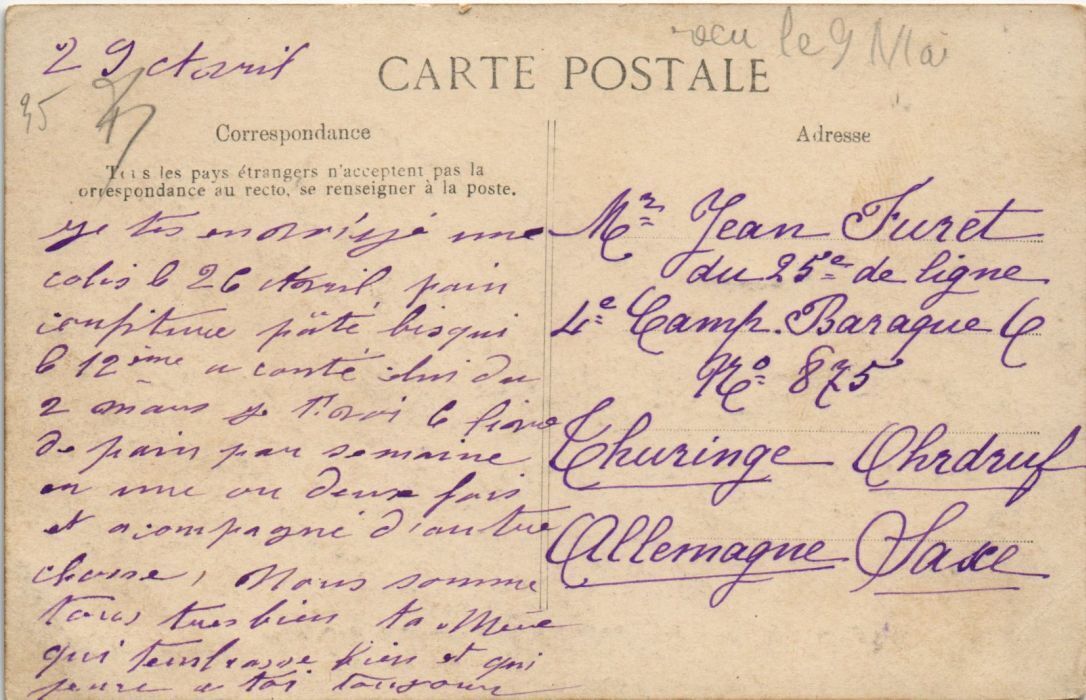 29 Avril
reçu le 9 Mai
35
CARTE POSTALE
Correspondance
Tous les pays étrangers n'acceptent pas la
orrespondance au recto, se renseigner à la poste.
je tes envoiyé une
colis le 26 Avril pain
confiture pâté bisqui
le 12ème a conté du
2 mars je t'
de pain par semaine
en une ou deux fois
et acompagné d'autre
chosse, Nous somme
tous tres bien ta Mere
qui tembrasse bien et qui
pense a toi toujours
Adresse
Mr Jean Furet
du 25e de ligne
4e Camp. Baraque C
No 875
Thuringe Ohrdruf
Allemagne Saxe